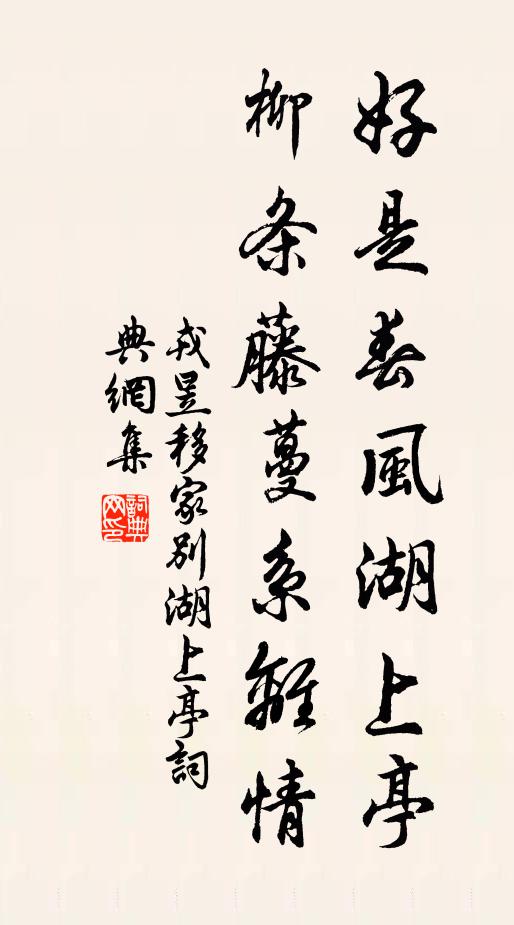 好是春風湖上亭
柳条藤蔓系離情
戎昱移家別湖上亭詞
典網集
詞典网印